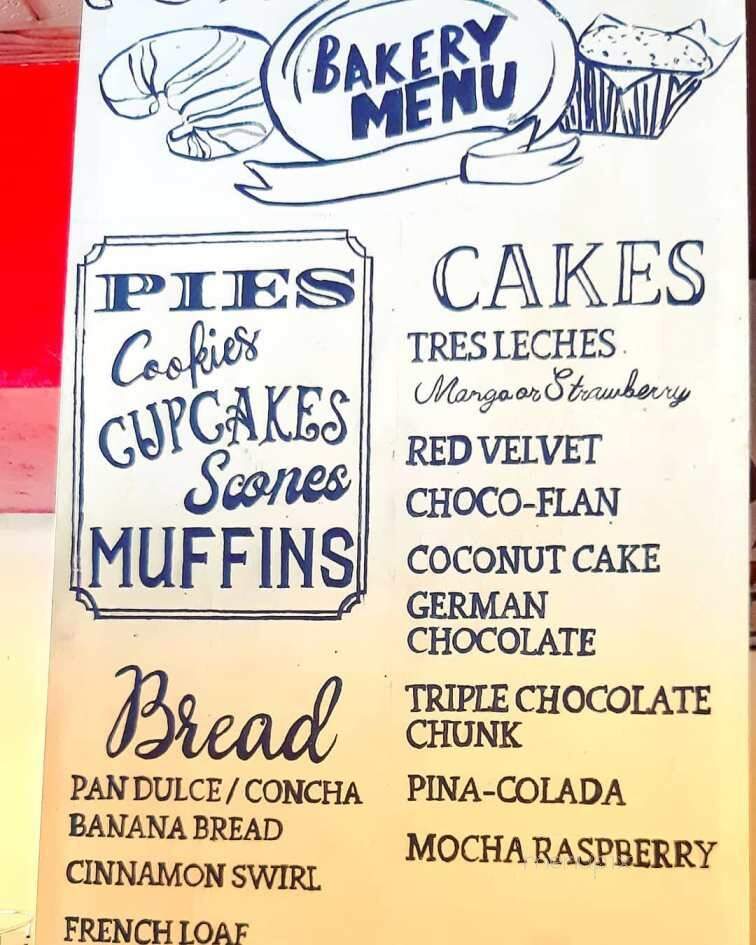 BAKERY
MENU
PIES
Cookies
CUPCAKES
Scones
MUFFINS
Bread
PAN DULCE / CONCHA
BANANA BREAD
CINNAMON SWIRL
FRENCH LOAF
CAKES
TRES LECHES
Mango or Strawberry
RED VELVET
CHOCO-FLAN
COCONUT CAKE
GERMAN
CHOCOLATE
TRIPLE CHOCOLATE
CHUNK
PINA-COLADA
MOCHA RASPBERRY